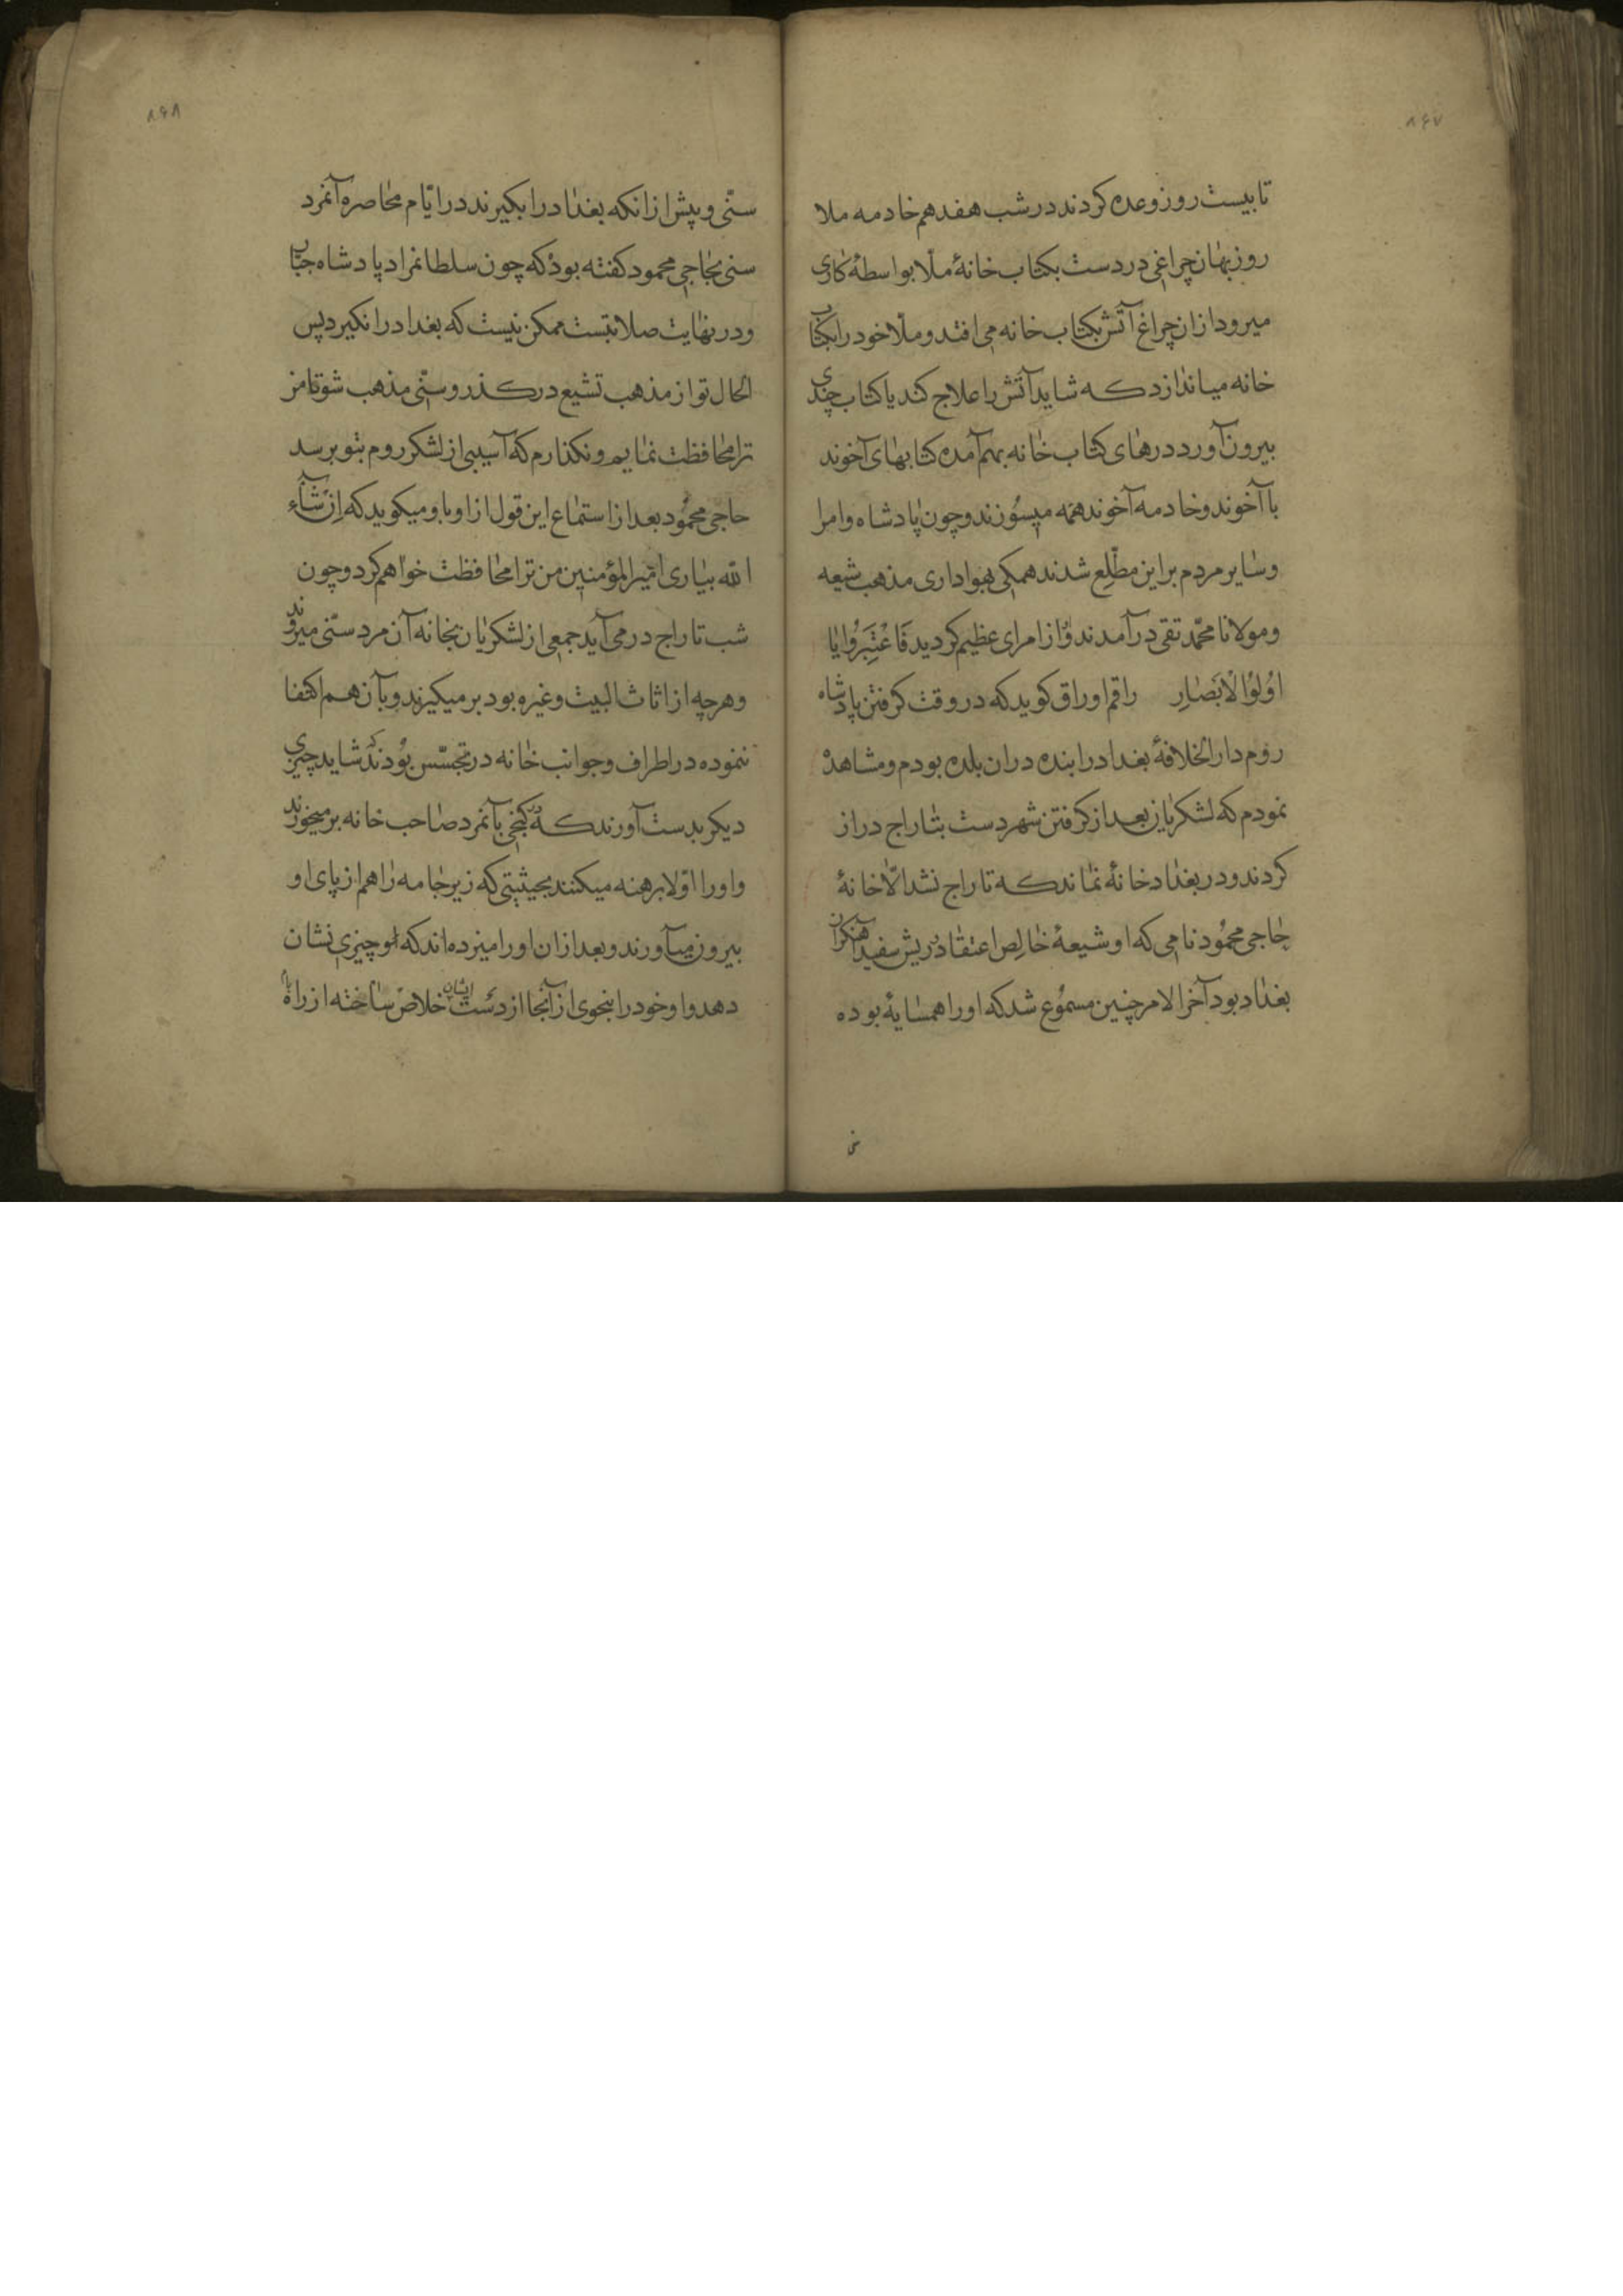 ۸۶۷
تا بیست روز وعده کردند در شب هفدهم خادمه ملا
روزبهان چراغی در دست بکتاب خانهٔ ملّا بواسطهٔ کاری
میرود از ان چراغ آتش بکتاب خانه می افتد و ملّا خود را بکتاب
خانه میاندازد که شاید آتش را علاج کند یا کتاب چندی
بیرون آورد درهای کتاب خانه بهم آمده کتابهای آخوند
با آخوند و خادمه آخوند همه میسوزند و چون پادشاه و امرا
و سایر مردم بر این مطّلع شدند همکی بهواداری مذهب شیعه
و مولانا محمّد تقی در آمدند و از امرای عظیم کردید فَاعْتَبِرُوا یا
اوُلوُا الْاَبْصٰارِ راقم اوراق کوید که در وقت کرفتن پادشاه
روم دار الخلافهٔ بغداد را بنده دران بلده بودم و مشاهده
نمودم که لشکریان بعد از کرفتن شهر دست بتاراج دراز
کردند و در بغداد خانهٔ نماند که تاراج نشد الّا خانهٔ
حاجی محمُود نامی که او شیعهٔ خالِص اعتقاد و ریش سفید آهنکران
بغداد بود آخر الامر چنین مسمُوع شد که او را همسایهٔ بوده
۸۶۸
سنّی و پیش از انکه بغداد را بکیرند در ایّام محاصره آنمرد
سنی بحاجی محمود کفته بود که چون سلطانمراد پادشاه جبّار
و در نهایت صلابتست ممکن نیست که بغداد را نکیرد پس
الحال تو از مذهب تشیع در کذر و سنّی مذهب شو تا من
ترا محافظت نمایم و نکذارم که آسیبی از لشکر روم بتو برسد
حاجی محمُود بعد از استماع این قول از او باو میکوید که اِنْ شآءَ
الله بیاری امیر المؤمنین من ترا محافظت خواهم کرد و چون
شب تاراج در می آید جمعی از لشکریان بخانه آن مرد سنّی میروند
و هرچه از اثاث البیت و غیره بود بر میکیرند و بآن هم اکتفا
ننموده در اطراف و جوانب خانه در تجسّس بوُدند که شاید چیزی
دیکر بدست آورند که در کنجی بآنمرد صاحب خانه بر میخورند
و او را اوّلا برهنه میکنند بحیثیتی که زیر جامه را هم از پای او
بیرون میآورند و بعد از ان او را میزده اند که او چیزی نشان
دهد و او خود را بنحوی از آنجا از دست ایشان خلاص ساخته از راه